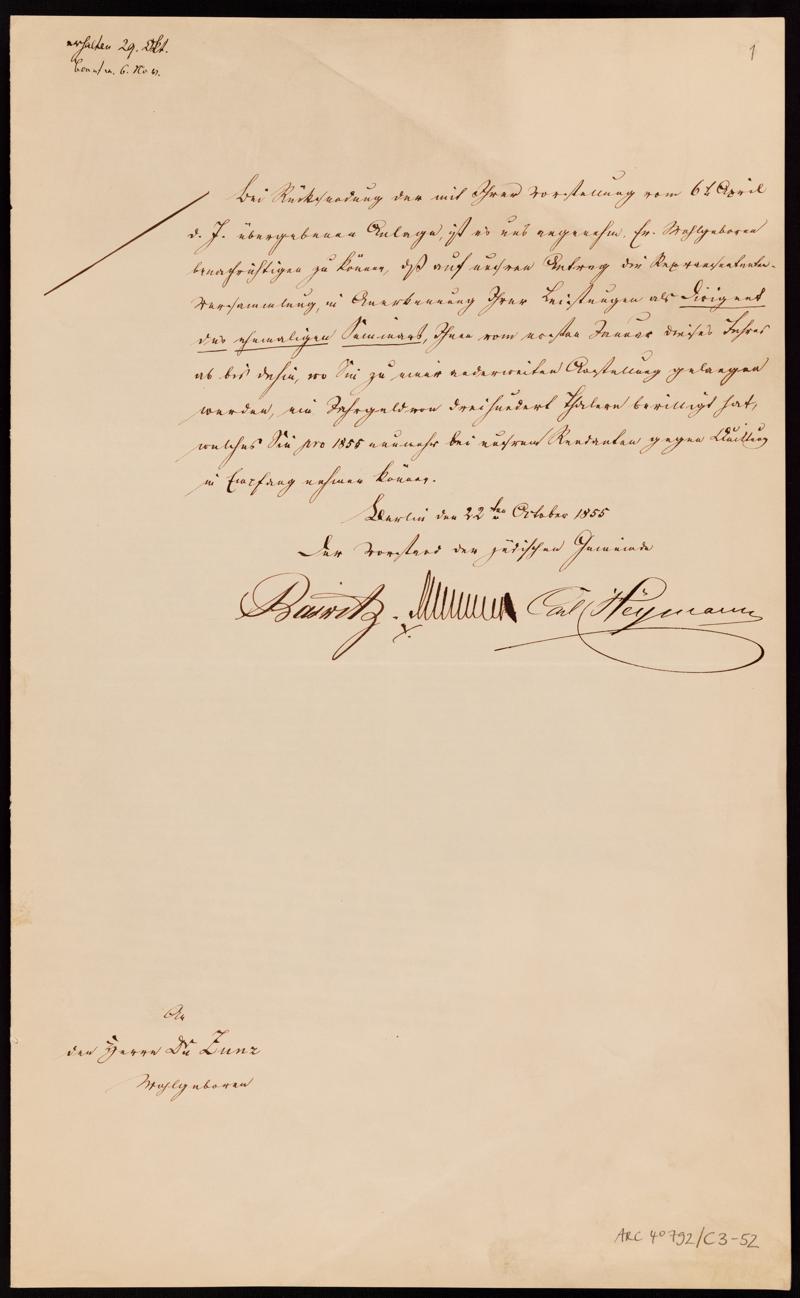 erhalten 29. Okt.
beantw. 6. Nov.
1
Bei Rücksendung der mit Ihrer Vorstellung vom 6t April
d. J. übergebenen Anlage, ist es uns angenehm, Ew. Wohlgeboren
benachrichtigen zu können, daß auf unsren Antrag die Repraesentanten-
Versammlung, in Anerkennung Ihrer Leistungen als Dirigent
des ehemaligen Seminars, Ihnen vom ersten Januar dieses Jahres
ab bis dahin, wo Sie zu einer anderweiten Anstellung gelangen
werden, ein Jahrgeld von dreihundert Thalern bewilligt hat,
welches Sie pro 1855 nunmehr bei unsrem Rendanten gegen Quittung
in Empfang nehmen können.
Berlin den 22ten October 1855
Der Vorstand der jüdischen Gemeinde
Carl Heymann
An
den Herrn Dr Zunz
Wohlgeboren
ARC 4° 792/C3-52